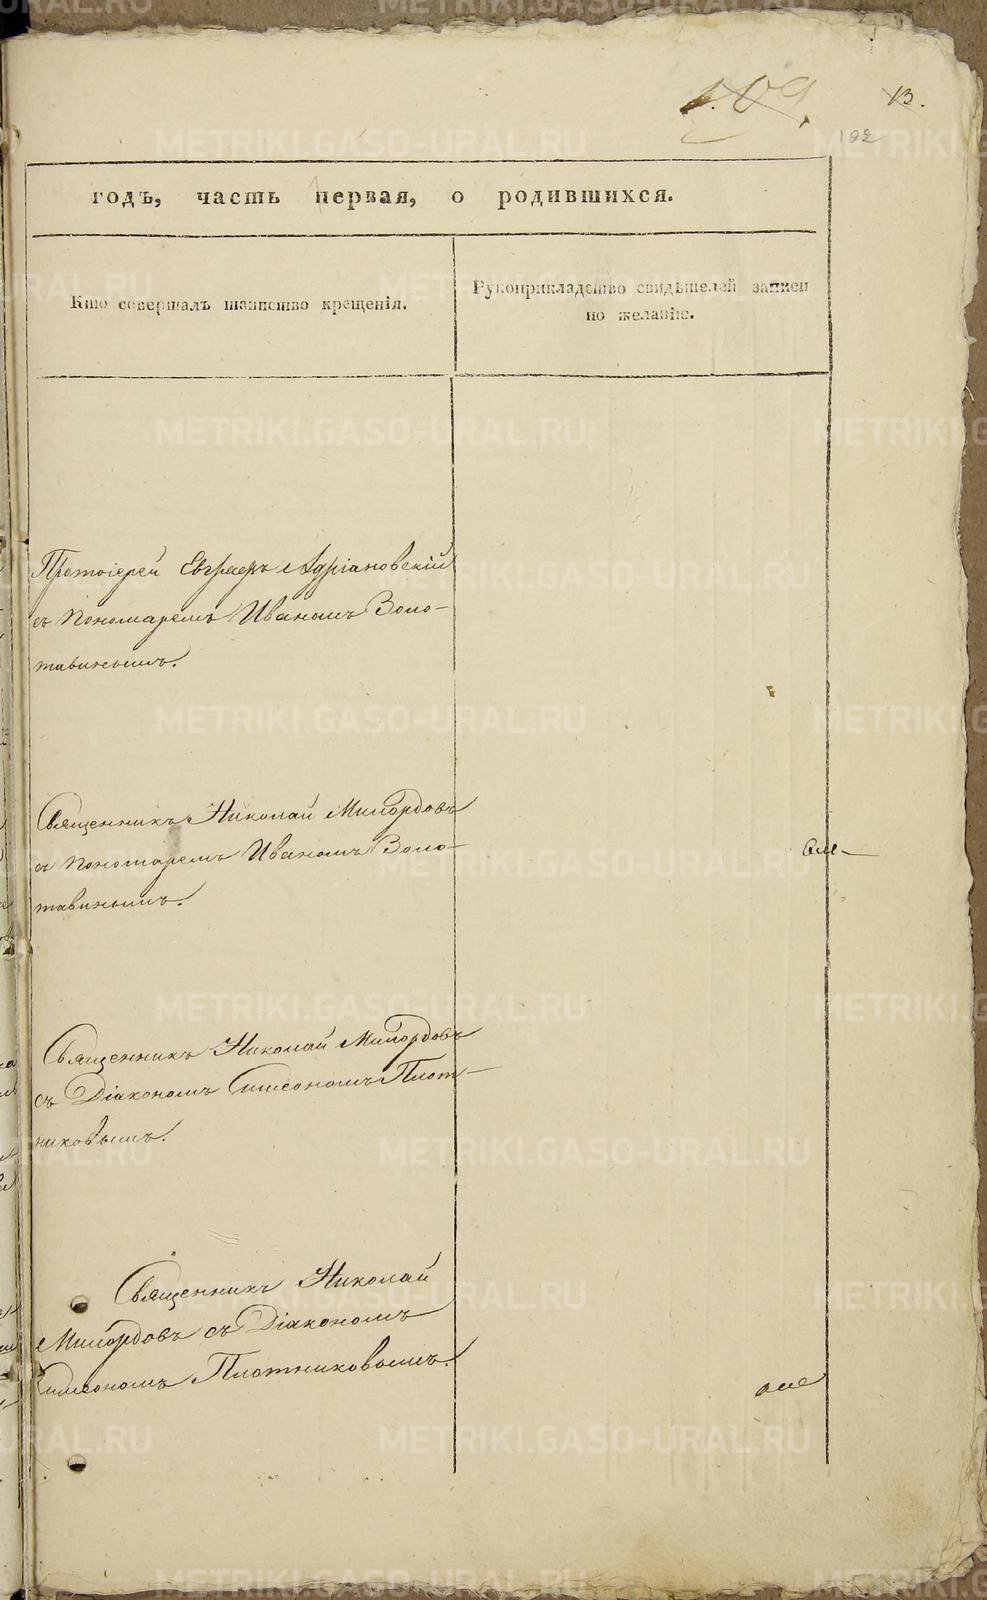 13.
192
годъ, часть первая, о родившихся.
Кто совершалъ таинство крещенія.
Рукоприкладство свидѣтелей записи
по желанію.
Протоіерей Евграфъ Адріановскій
съ Пономаремъ Иваномъ Золо-
тавинымъ.
Священникъ Николай Милордовъ
съ Пономаремъ Иваномъ Золо-
тавинымъ.
Священникъ Николай Милордовъ
съ Діакономъ Симеономъ Плот-
никовымъ.
Священникъ Николай
Милордовъ съ Діакономъ
Симеономъ Плотниковымъ.
METRIKI.GASO-URAL.RU